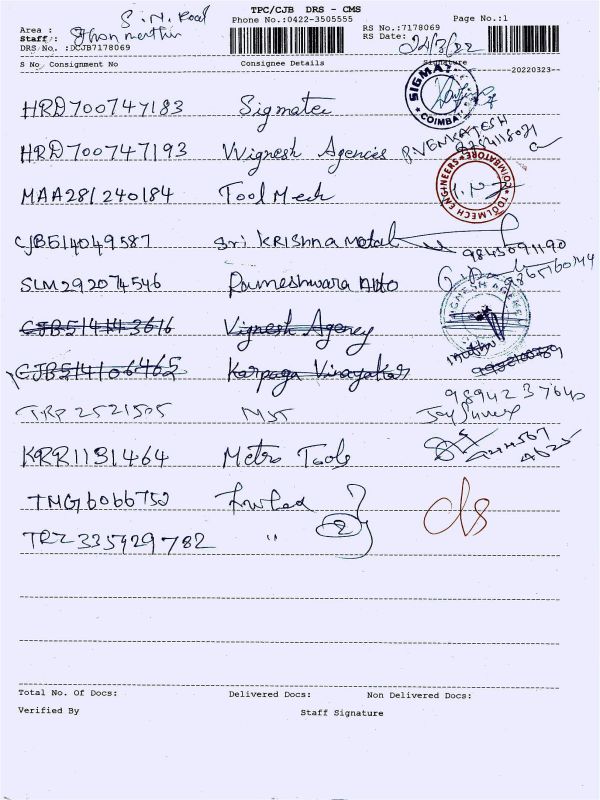 TPC/CJB DRS - CMS
S.N. Road
Phone No.:0422-3505555
Page No.:1
Area :
Staff :
RS No.:7178069
DRS No. :DCJB7178069
RS Date: 24/3/22
S No Consignment No Consignee Details Signature
20220323
HRD700747183 Sigmatec
SIGMAT
COIMBA
HRD700747193 Vignesh Agences P.VENKATESH
MAA281240184 Tool Mech
TOOLMECH ENGINEERS COIMBATORE
CJB514049587 Sri KRISHNA Metal
9843091190
SLM292074546 Rameshwara Auto
CJB514143616 Vignesh Agency
GNESH AGEN
CJB514106465 Karpaga Vinayakar
TRP 2521505 MST
98942 37640
KRR1131464 Metro Tools
TMG6066752
2
TRZ 335929782 "
ds
Total No. Of Docs: Delivered Docs: Non Delivered Docs:
Verified By Staff Signature